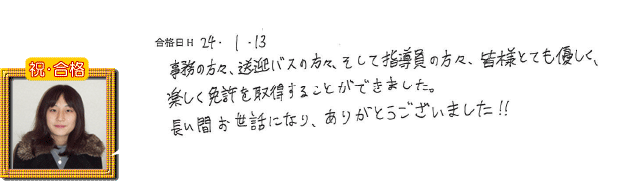 合格日H 24・1・13
祝・合格
事務の方々、送迎バスの方々、そして指導員の方々、皆様とても優しく、
楽しく免許を取得することができました。
長い間お世話になり、ありがとうございました!!